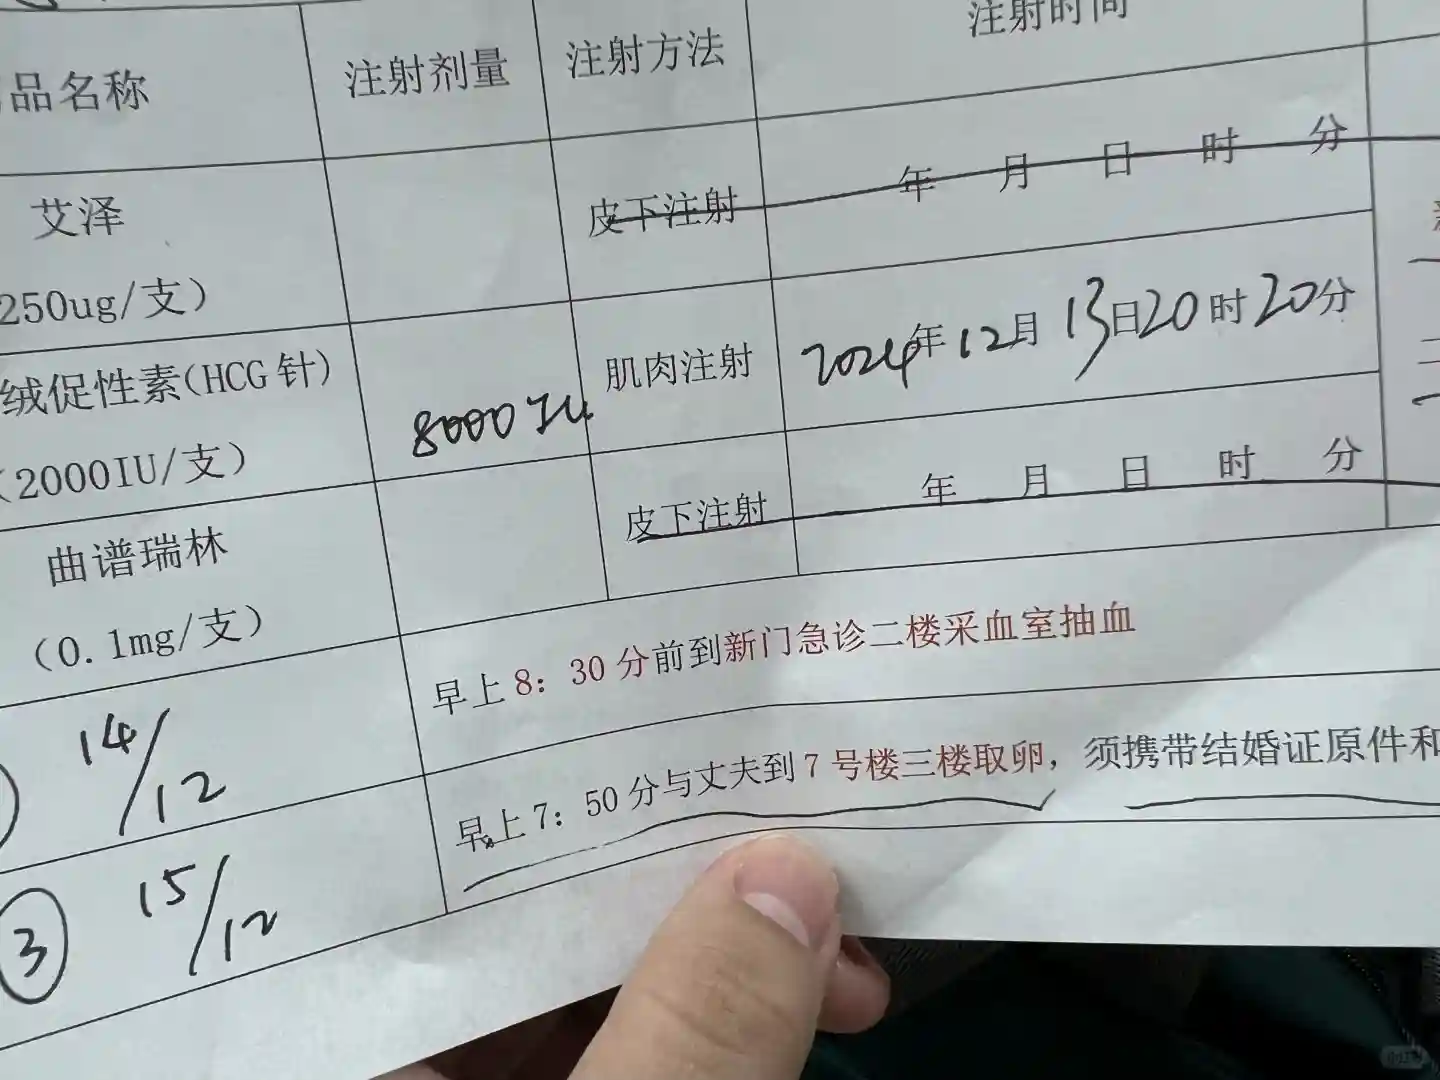 品名称 注射剂量 注射方法 注射时间
艾泽
250ug/支）
皮下注射 年 月 日 时 分
绒促性素(HCG针)
（2000IU/支）
8000IU 肌肉注射 2024年12月13日20时20分
曲谱瑞林
（0.1mg/支）
皮下注射 年 月 日 时 分
14/12 早上8：30分前到新门急诊二楼采血室抽血
③ 15/12 早上7：50分与丈夫到7号楼三楼取卵，须携带结婚证原件和